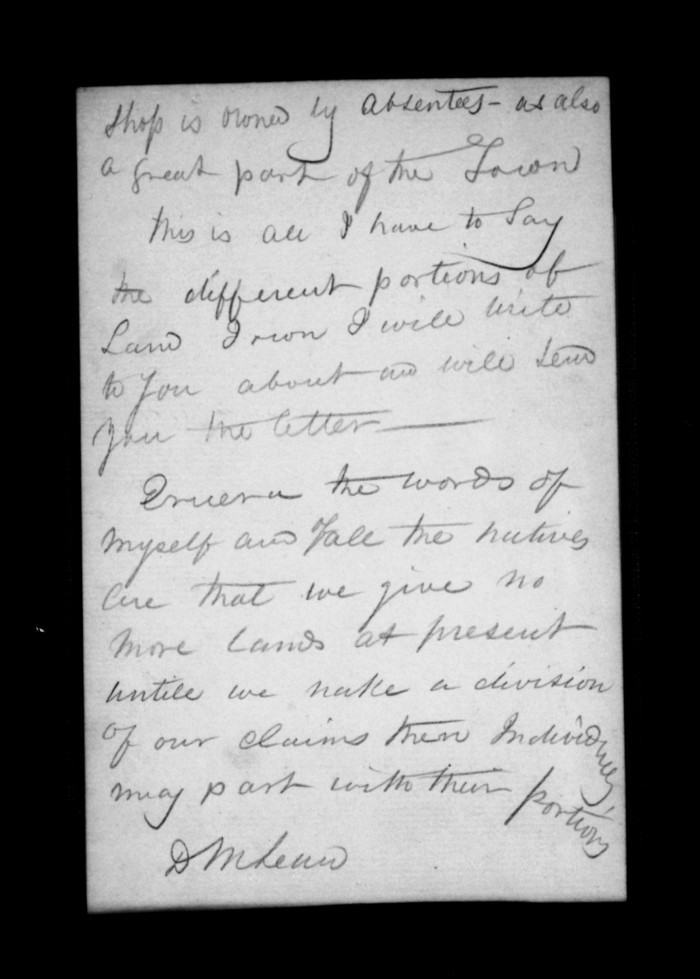 shop is owned by absentees - as also
a great part of the Town
this is all I have to Say
the different portions of
Land I own I will write
to you about and will send
you the letter
Eruera the words of
myself and of all the natives
are that we give no
more lands at present
untill we make a division
of our claims then Individuals
may part with their portions
D McLean